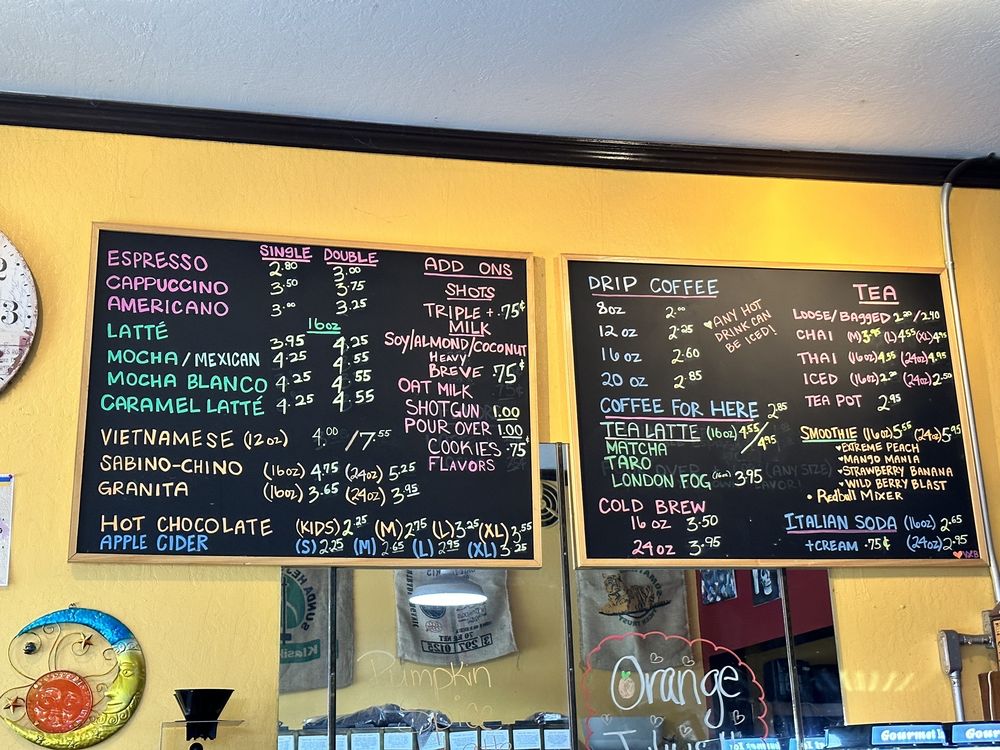 SINGLE DOUBLE
ESPRESSO 2.80 3.00
CAPPUCCINO 3.50 3.75
AMERICANO 3.00 3.25
16oz
LATTÉ 3.95 4.25
MOCHA/MEXICAN 4.25 4.55
MOCHA BLANCO 4.25 4.55
CARAMEL LATTÉ 4.25 4.55
VIETNAMESE (12oz) 4.00/7.55
SABINO-CHINO (16oz) 4.75 (24oz) 5.25
GRANITA (16oz) 3.65 (24oz) 3.95
HOT CHOCOLATE (KIDS) 2.25 (M) 2.75 (L) 3.25 (XL) 3.55
APPLE CIDER (S) 2.25 (M) 2.65 (L) 2.95 (XL) 3.25
ADD ONS
SHOTS
TRIPLE + .75¢
MILK
SOY/ALMOND/COCONUT
HEAVY/
BREVE .75¢
OAT MILK
SHOTGUN 1.00
POUR OVER 1.00
COOKIES .75¢
FLAVORS
DRIP COFFEE
8oz 2.00
12 oz 2.25
16 oz 2.60
20 oz 2.85
ANY HOT
DRINK CAN
BE ICED!
COFFEE FOR HERE 2.85
TEA LATTE (16oz) 4.55/4.95
MATCHA
TARO
LONDON FOG 3.95
COLD BREW
16 oz 3.50
24 oz 3.95
TEA
LOOSE/BAGGED 2.20/2.40
CHAI (M) 3.95 (L) 4.55 (XL) 4.95
THAI (16oz) 4.55 (24oz) 4.95
ICED (16oz) 2.20 (24oz) 2.50
TEA POT 2.95
SMOOTHIE (16oz) 5.55 (24oz) 5.95
EXTREME PEACH
MANGO MANIA
STRAWBERRY BANANA
WILD BERRY BLAST
• Redbull MIXER
ITALIAN SODA (16oz) 2.65
+CREAM .75¢ (24oz) 2.95
Pumpkin
Orange
Gourmet